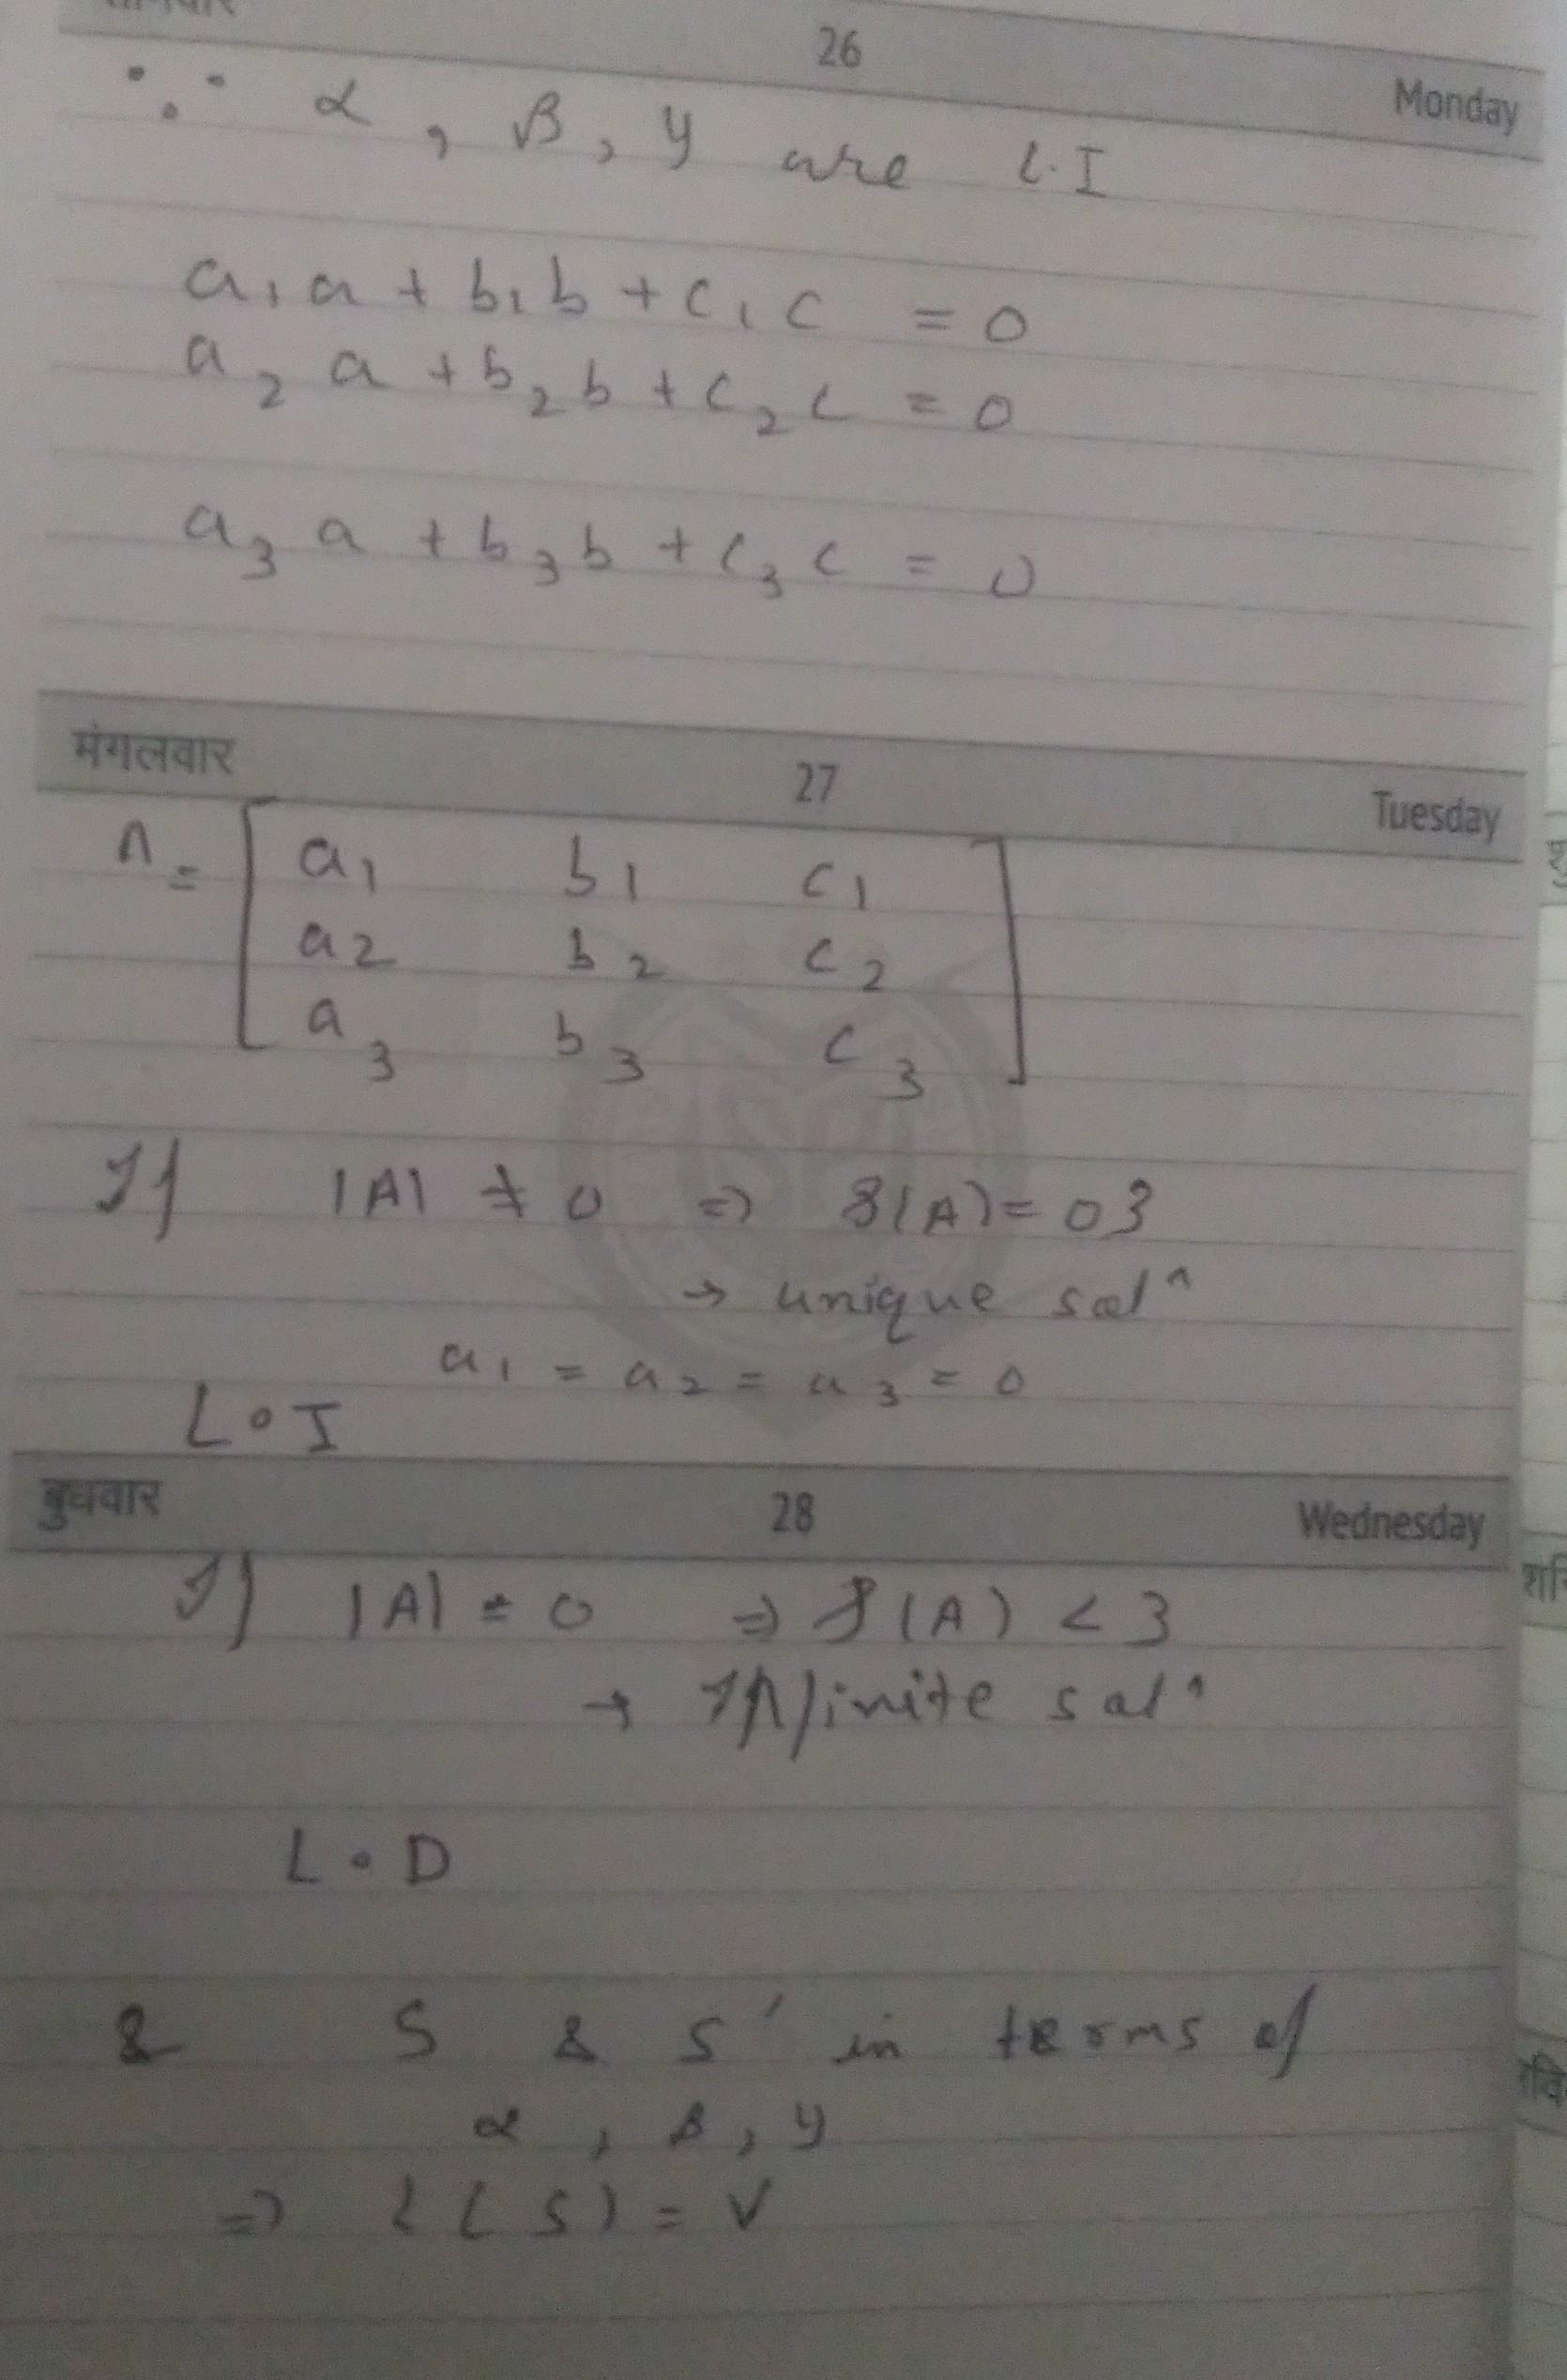 26
Monday
∵ α, β, y are L.I
a₁a + b₁b + c₁c = 0
a₂a + b₂b + c₂c = 0
a₃a + b₃b + c₃c = 0
मंगलवार 27 Tuesday
A = [ a₁ b₁ c₁
a₂ b₂ c₂
a₃ b₃ c₃ ]
If |A| ≠ 0 ⇒ ρ(A) = 03
→ unique solⁿ
a₁ = a₂ = a₃ = 0
L.I
बुधवार 28 Wednesday
If |A| = 0 ⇒ ρ(A) < 3
→ Infinite solⁿ
L.D
& S & S' in terms of
α, β, y
⇒ L(S) = V